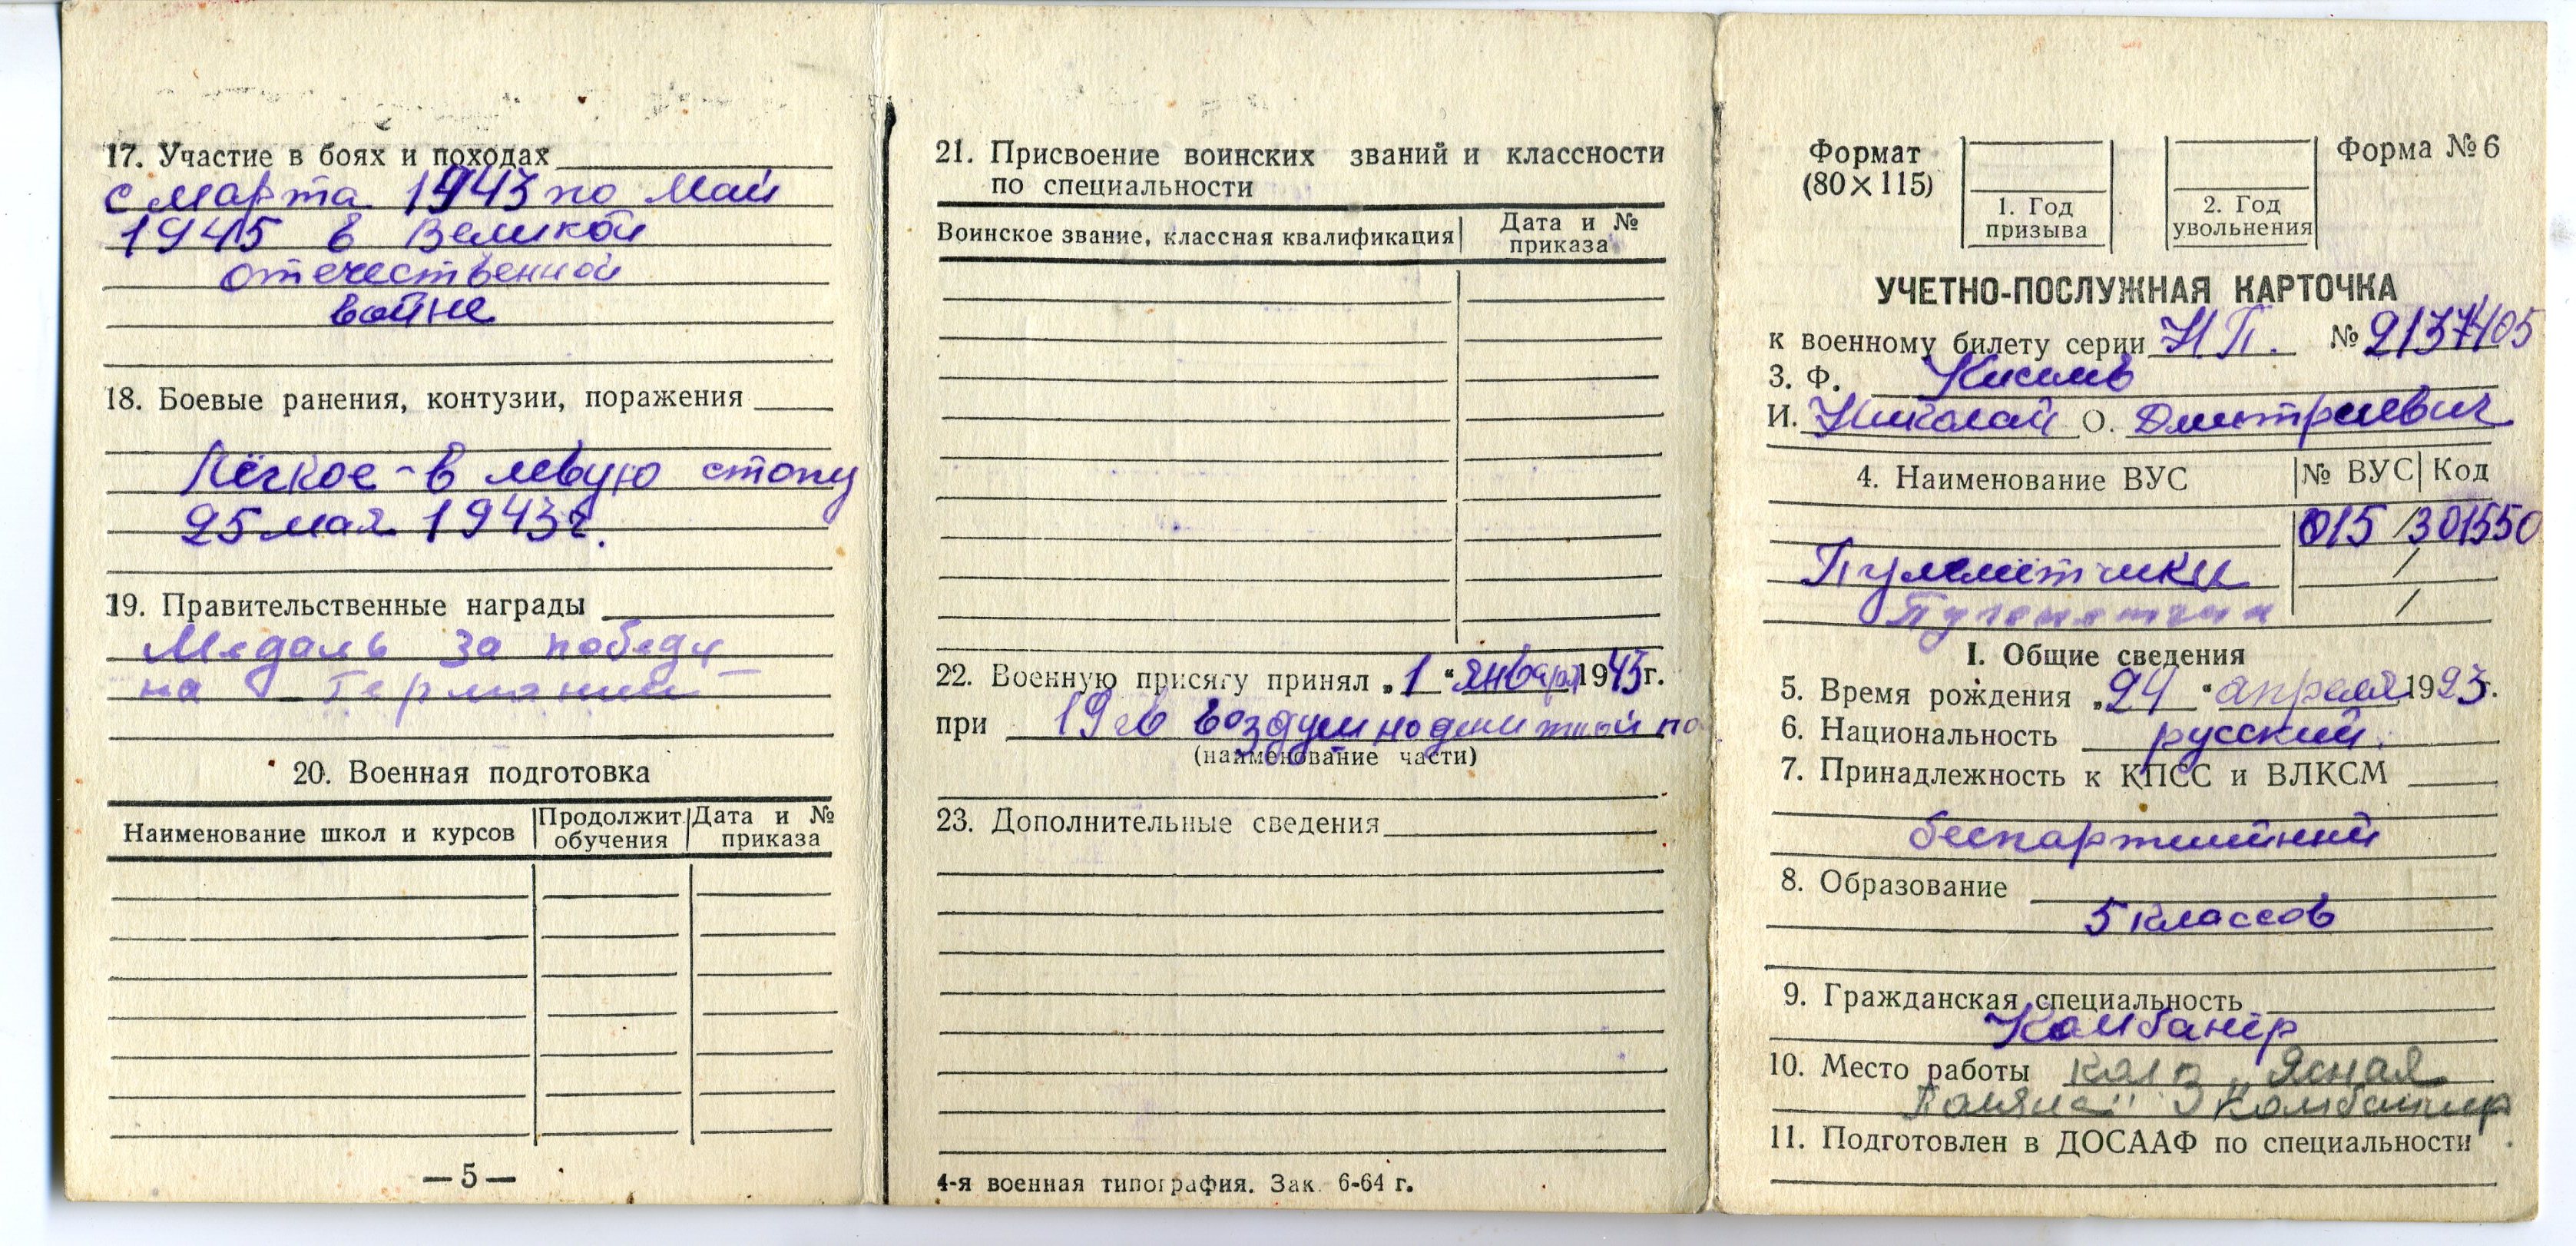 17. Участие в боях и походах
с марта 1943 по май
1945 в Великой
отечественной
войне
18. Боевые ранения, контузии, поражения
Лёгкое - в левую стопу
25 мая 1943 г.
19. Правительственные награды
Медаль за победу
на Германией
20. Военная подготовка
Наименование школ и курсов
Продолжит. обучения
Дата и № приказа
— 5 —
21. Присвоение воинских званий и классности
по специальности
Воинское звание, классная квалификация
Дата и № приказа
22. Военную присягу принял „1“ января 1943 г.
при воздушнодеситной по
(наименование части)
23. Дополнительные сведения
4-я военная типография. Зак. 6-64 г.
Формат
(80×115)
1. Год
призыва
2. Год
увольнения
Форма № 6
УЧЕТНО-ПОСЛУЖНАЯ КАРТОЧКА
к военному билету серии НП. №
3. Ф. Киселев
И. Николай О. Дмитриевич
4. Наименование ВУС № ВУС Код
015 / 301550
Пулемётчики
/
/
I. Общие сведения
5. Время рождения „24“ апреля 1923 г.
6. Национальность русский.
7. Принадлежность к КПСС и ВЛКСМ
беспартийный
8. Образование
5 классов
9. Гражданская специальность
Комбанёр
10. Место работы колз „Ясная
Поляна"
11. Подготовлен в ДОСААФ по специальности